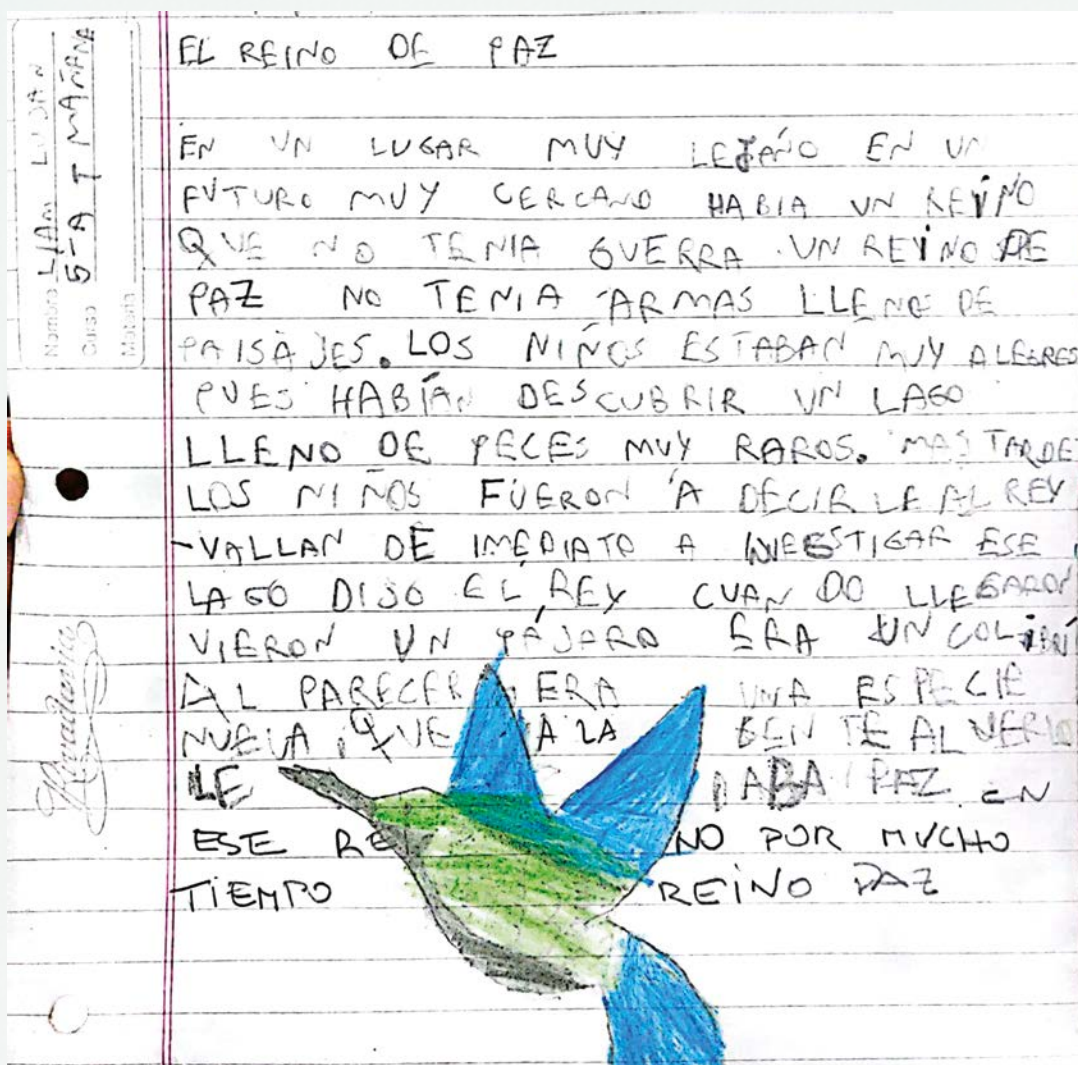 Nombre LIAM LUJAN
Curso 5-A T MAÑANA
Materia
EL REINO DE PAZ
EN UN LUGAR MUY LEJANO EN UN
FUTURO MUY CERCANO HABIA UN REINO
QUE NO TENIA GUERRA UN REINO DE
PAZ NO TENIA ARMAS LLENO DE
PAISAJES. LOS NIÑOS ESTABAN MUY ALEGRES
PUES HABÍAN DESCUBRIR UN LAGO
LLENO DE PECES MUY RAROS. MAS TARDE
LOS NIÑOS FUERON A DECIR LE AL REY
-VALLAN DE IMEDIATO A INVESTIGAR ESE
LAGO DIJO EL REY CUAN DO LLEGARON
VIERON UN PÁJARO ERA UN COLIBRÍ
AL PARECER ERA UNA ESPECIE
NUEVA QUE A LA GEN TE AL VERLO
LE DABA PAZ EN
ESE REINO POR MUCHO
TIEMPO REINO PAZ
Rivadavia